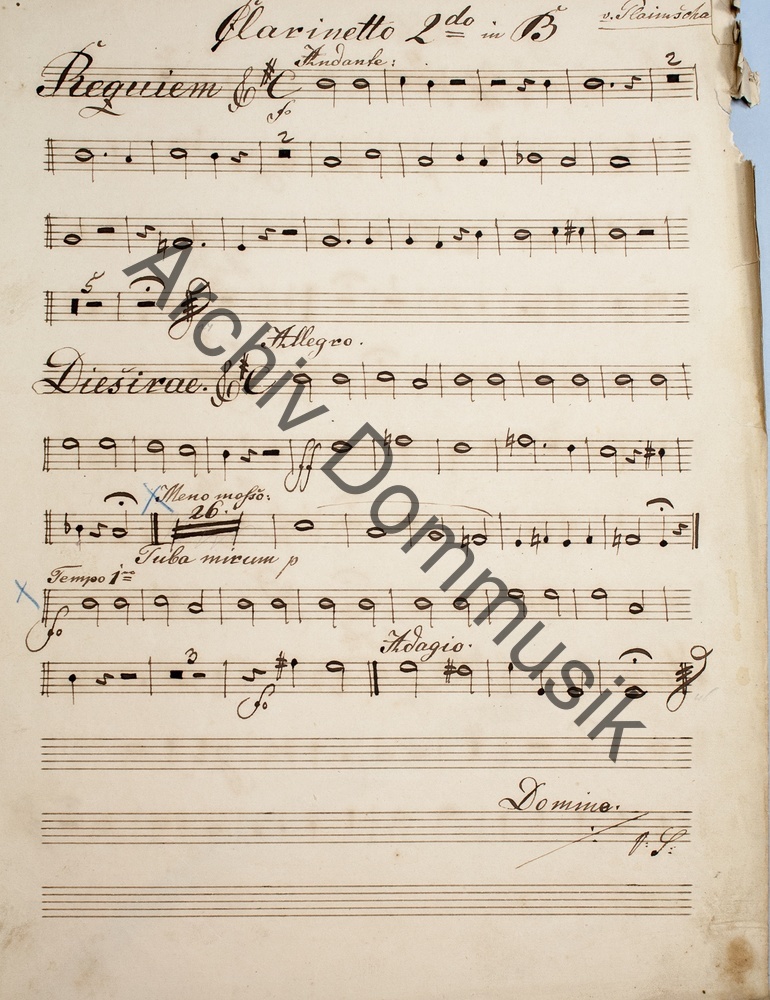 Clarinetto 2do in B
Andante:
Requiem
fo
2
2
5
Allegro.
Dies irae.
ff
Meno mosso:
26.
Tuba mirum p
Tempo 1mo
fo
Adagio.
3
fo
Domine.
V: S:
Archiv Dommusik